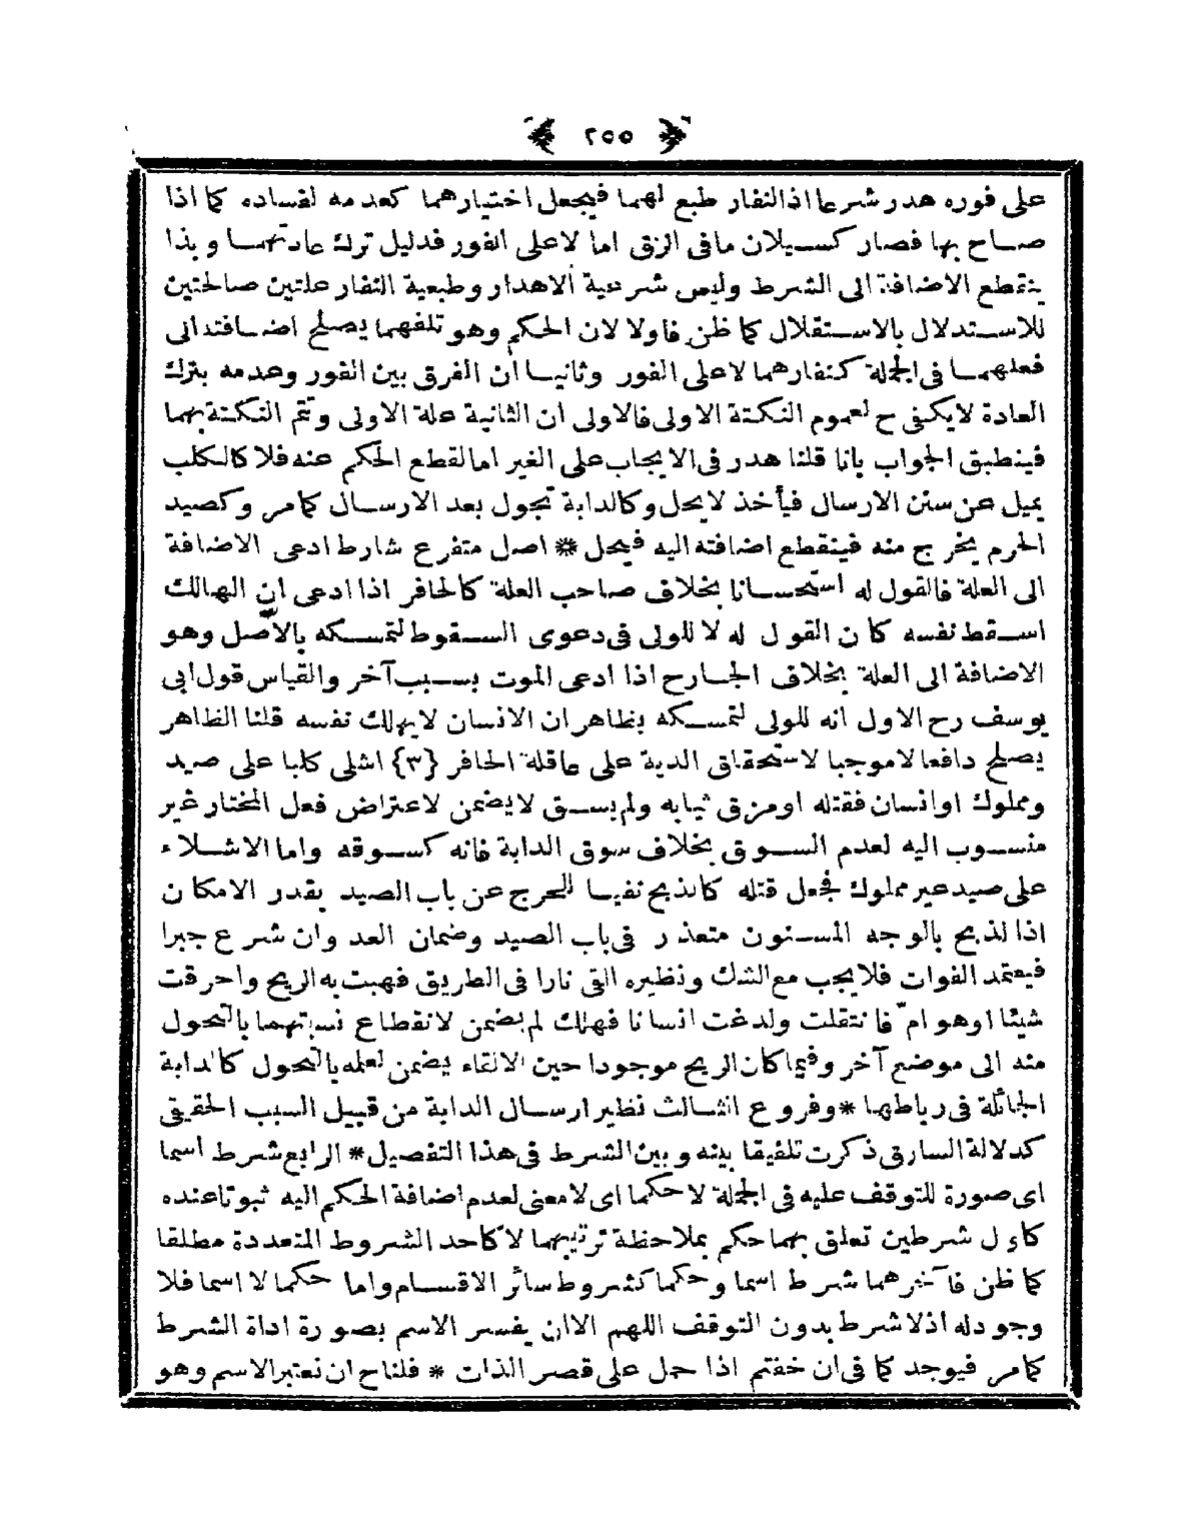 ٢٥٥
على فوره هدر شرعا اذ النفار طبع لهما فيجعل اختيارهما كعدمه لفساده كما اذا
صاح بها فصار كسيلان ما فى الزق اما لا على الفور فدليل ترك عادتهما وبذا
ينقطع الاضافة الى الشرط وليس شرعية الاهدار وطبعية النفار علتين صالحتين
للاستدلال بالاستقلال كما ظن فاولا لان الحكم وهو تلفهما يصلح اضافته الى
فعلهما فى الجملة كنفارهما لا على الفور وثانيا ان الفرق بين الفور وعدمه بترك
العادة لا يكفى ح لعموم النكتة الاولى فالاولى ان الثانية علة الاولى وتتم النكتة بهما
فينطبق الجواب بانا قلنا هدر فى الايجاب على الغير اما لقطع الحكم عنه فلا كالكلب
يميل عن سنن الارسال فيأخذ لا يحل وكالدابة تجول بعد الارسال كما مر وكصيد
الحرم يخرج منه فينقطع اضافته اليه فيحل * اصل متفرع شارط ادعى الاضافة
الى العلة فالقول له استحسانا بخلاف صاحب العلة كالحافر اذا ادعى ان الهالك
اسقط نفسه كان القول له لا للولى فى دعوى السقوط لتمسكه بالأصل وهو
الاضافة الى العلة بخلاف الجارح اذا ادعى الموت بسبب آخر والقياس قول ابى
يوسف رح الاول انه للولى لتمسكه بظاهر ان الانسان لا يهلك نفسه قلنا الظاهر
يصلح دافعا لا موجبا لاستحقاق الدية على عاقلة الحافر {٣} اشلى كلبا على صيد
ومملوك او انسان فقتله او مزق ثيابه ولم يسق لا يضمن لاعتراض فعل المختار غير
منسوب اليه لعدم السوق بخلاف سوق الدابة فانه كسوقه واما الاشلاء
على صيد غير مملوك فجعل قتله كالذبح نفيا للحرج عن باب الصيد بقدر الامكان
اذا لذبح بالوجه المسنون متعذر فى باب الصيد وضمان العد وان شرع جبرا
فيعتمد الفوات فلا يجب مع الشك ونظيره القى نارا فى الطريق فهبت به الريح واحرقت
شيئا او هوامّ فانتقلت ولدغت انسانا فهلك لم يضمن لانقطاع نسبتهما بالتحول
منه الى موضع آخر وفيما كان الريح موجودا حين الالقاء يضمن لعلمه بالتحول كالدابة
الجائلة فى رباطها * وفروع الثالث نظير ارسال الدابة من قبيل السبب الحقيقى
كدلالة السارق ذكرت تلفيقا بينه وبين الشرط فى هذا التفصيل * الرابع شرط اسما
اى صورة للتوقف عليه فى الجملة لا حكما اى لا معنى لعدم اضافة الحكم اليه ثبوتا عنده
كاول شرطين تعلق بهما حكم بملاحظة ترتيبهما لا كاحد الشروط المتعددة مطلقا
كما ظن فآخرهما شرط اسما وحكما كشروط سائر الاقسام واما حكما لا اسما فلا
وجود له اذ لا شرط بدون التوقف اللهم الا ان يفسر الاسم بصورة اداة الشرط
كما مر فيوجد كما فى ان خفتم اذا حمل على قصر الذات * فلناح ان نعتبر الاسم وهو